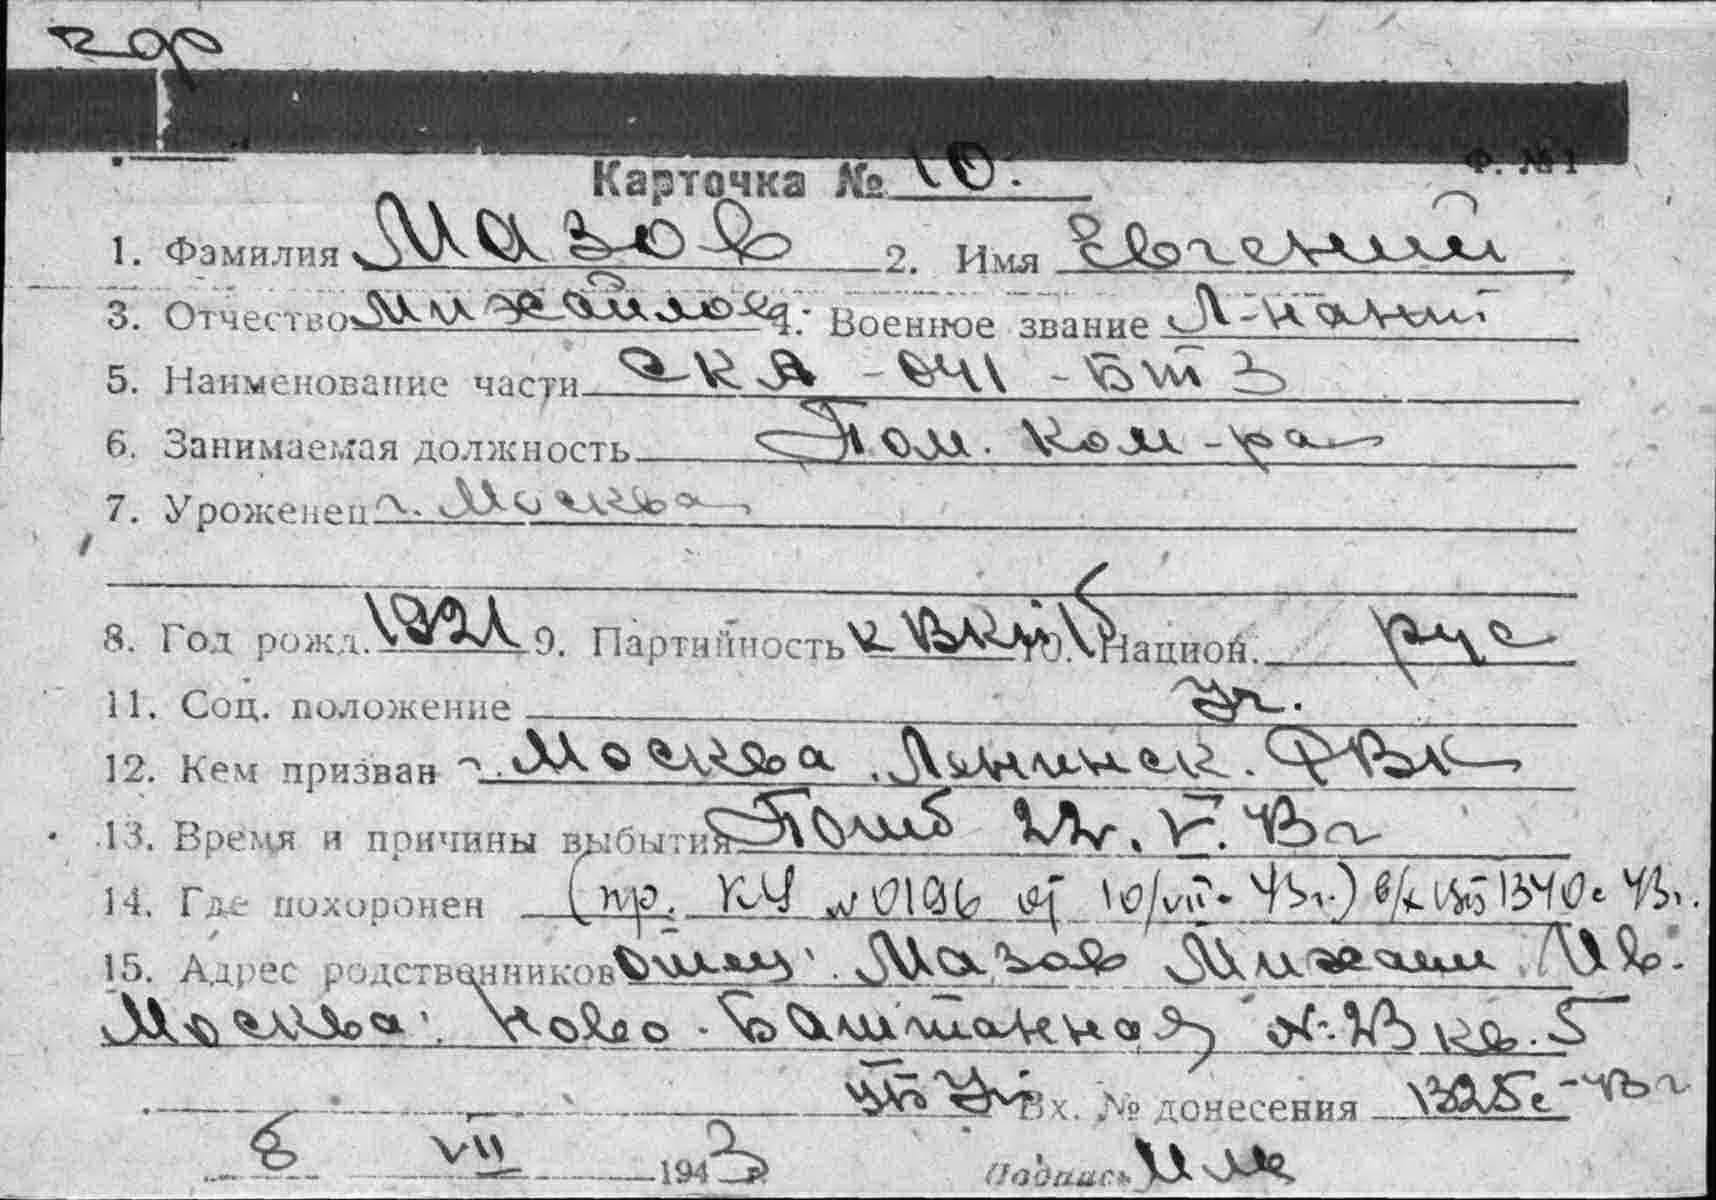 Ф. № 1
Карточка № 10.
1. Фамилия Мазов 2. Имя Евгений
3. Отчество Михайлов 4. Военное звание Л-нант
5. Наименование части СКА - 041 - БТЗ
6. Занимаемая должность Пом. ком-ра
7. Уроженец г. Москва
8. Год рожд. 1921 9. Партийность к ВКПб 10. Национ. рус
11. Соц. положение Уч.
12. Кем призван г. Москва. Ленинск. РВК
13. Время и причины выбытия Погиб 22. V. 43 г
14. Где похоронен (пр. КЧ № 0196 от 10/VII - 43 г.) 1340с 43 г.
15. Адрес родственников отец: Мазов Михаил Ив.
Москва: Ново-Баштанная № 23 кв. 5
Вх. № донесения 1325с - 43 г
8 VII 1943 Подпись